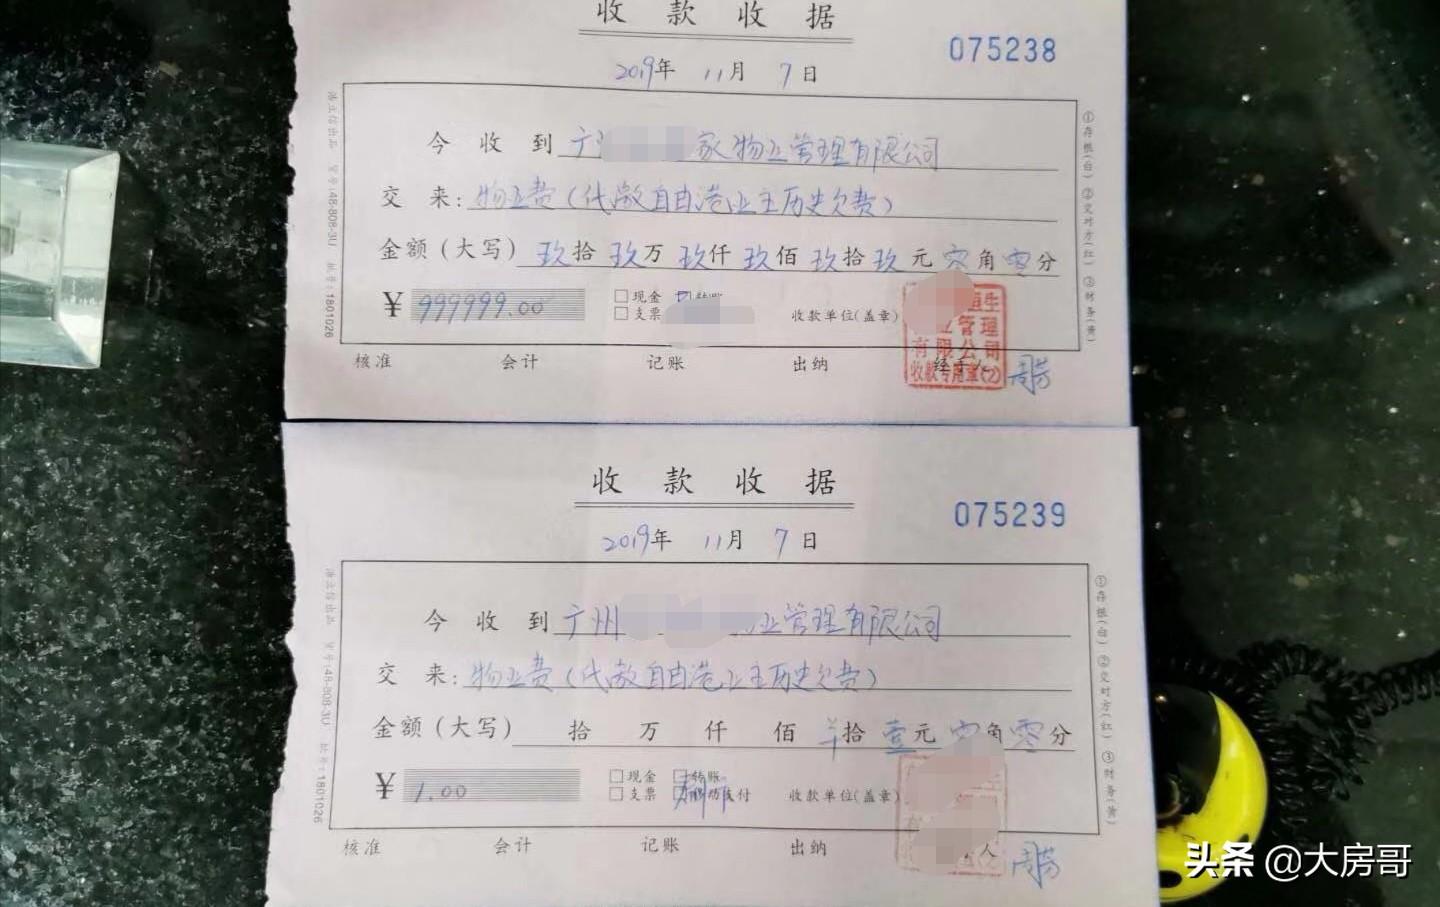 收款收据
075238
2019年 11月 7日
今收到 广 家物业管理有限公司
交来: 物业费(代缴自由港业主历史欠费)
金额(大写) 玖拾玖万玖仟玖佰玖拾玖元零角零分
¥ 999999.00
□现金
□支票
收款单位(盖章)
恒生
业管理
有限公司
收款专用章(2)
核准 会计 记账 出纳
①存根(白) ②交对方(红) ③财务(黄)
48-808-3U
1801026
收款收据
075239
2019年 11月 7日
今收到 广州 业管理有限公司
交来: 物业费(代缴自由港业主历史欠费)
金额(大写) 拾 万 仟 佰 拾壹元零角零分
¥ 1.00
□现金 □转账
□支票 移动支付
收款单位(盖章)
核准 会计 记账 出纳 人
①存根(白) ②交对方(红) ③财务(黄)
48-808-3U
1801026
头条 @大房哥